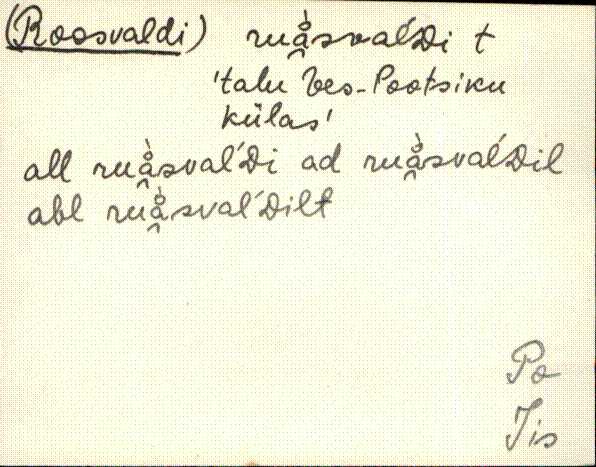 (Roosvaldi) ruå̀svaĺDi t
'talu Ves-Pootsiku
külas'
all ruå̀svaĺDi ad ruå̀svaĺDil
abl ruå̀svaĺDilt
Po
Jis